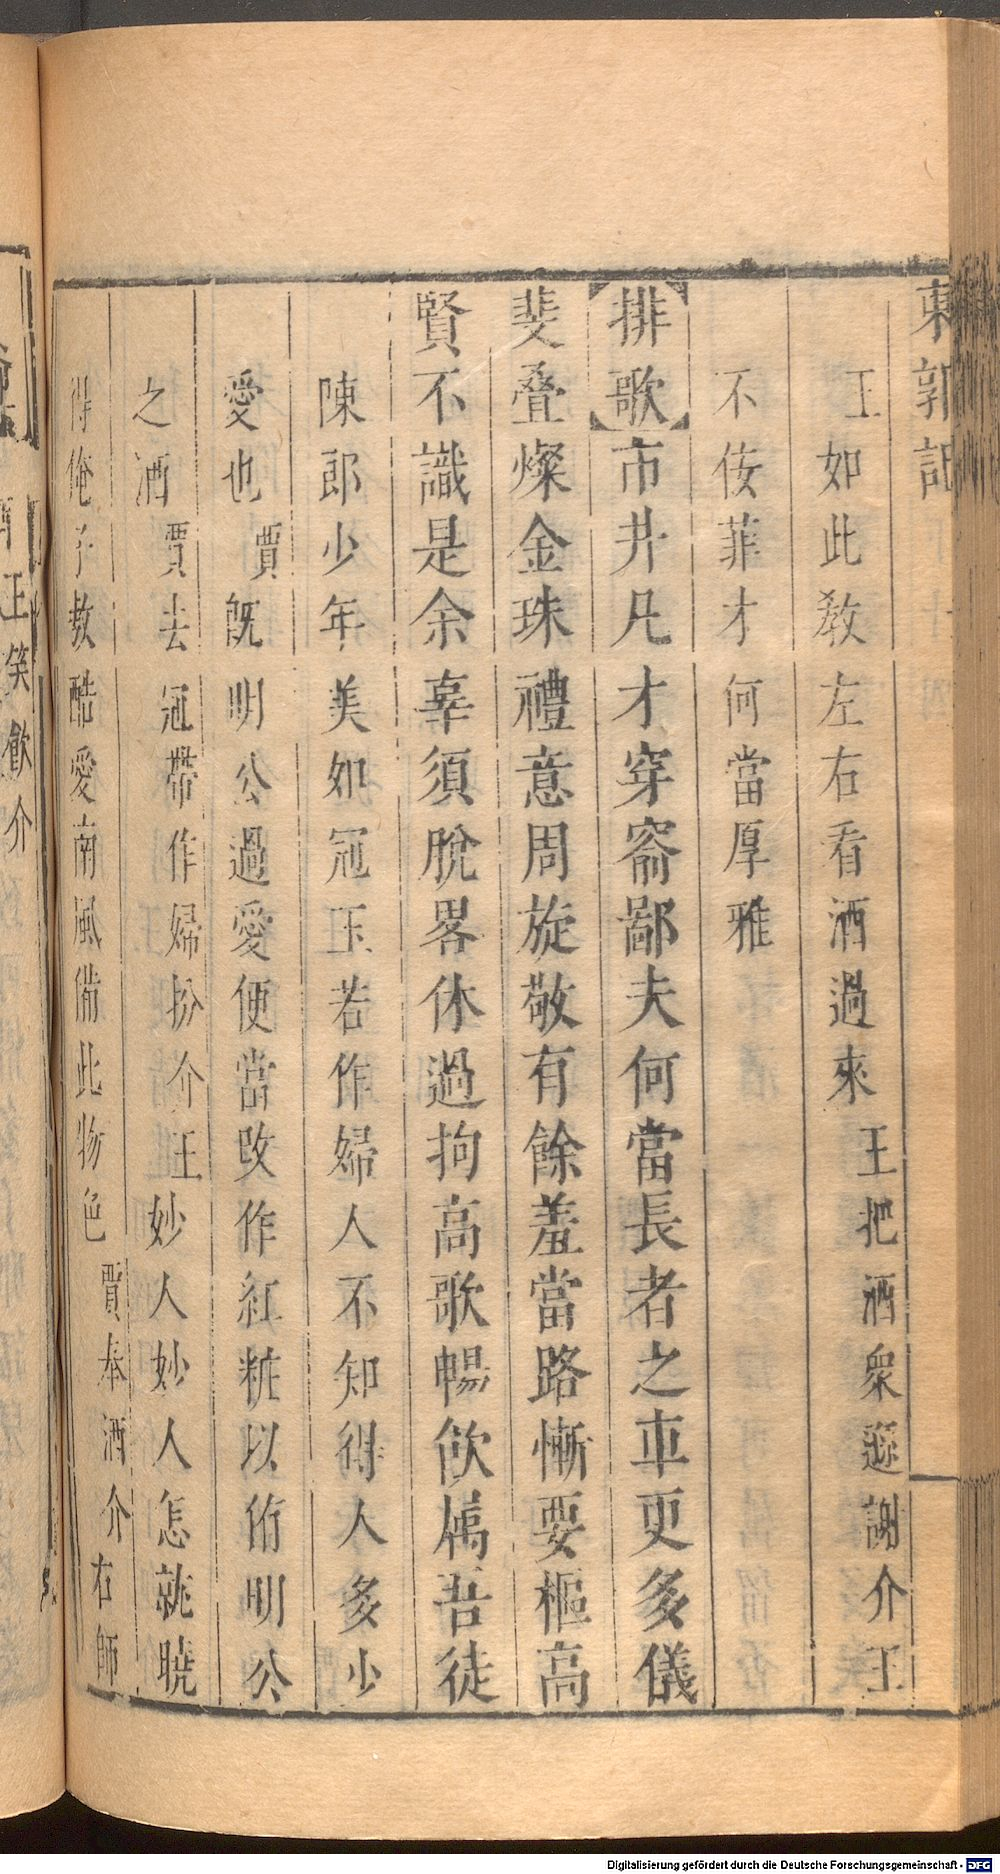 東郭記
王如此教左右看酒過來王把酒衆遜謝介王
不佞菲才何當厚雅
排歌市井凡才穿窬鄙夫何當長者之車更多儀
斐疊燦金珠禮意周旋敬有餘羞當路慚要樞高
賢不識是余辜須脫畧休過拘高歌暢飲屬吾徒
陳郎少年美如冠玉若作婦人不知得人多少
愛也賈旣明公過愛便當改作紅粧以侑明公
之酒賈去冠帶作婦扮介王妙人妙人怎就曉
得俺子敖酷愛南風備此物色賈奉酒介右師
王笑飲介
Digitalisierung gefördert durch die Deutsche Forschungsgemeinschaft - DFG